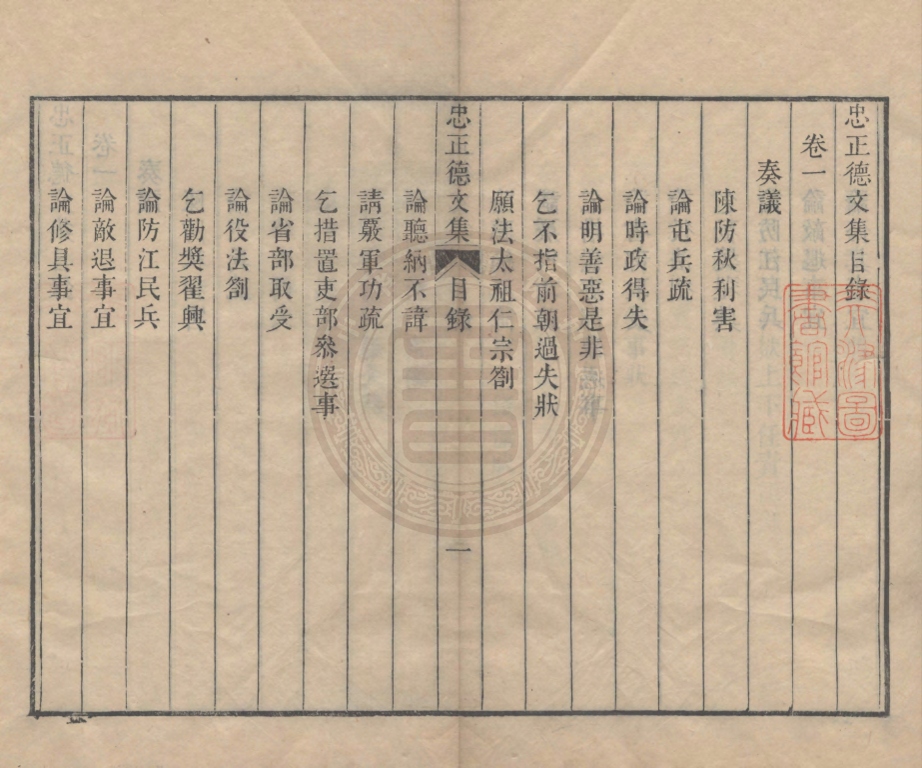 忠正德文集目錄
卷一
奏議
陳防秋利害
論屯兵疏
論時政得失
論明善惡是非
乞不指前朝過失狀
願法太祖仁宗劄
忠正德文集 目錄 一
論聽納不諱
請覈軍功疏
乞措置吏部叅選事
論省部取受
論役法劄
乞勸獎翟興
論防江民兵
論敵退事宜
論修具事宜